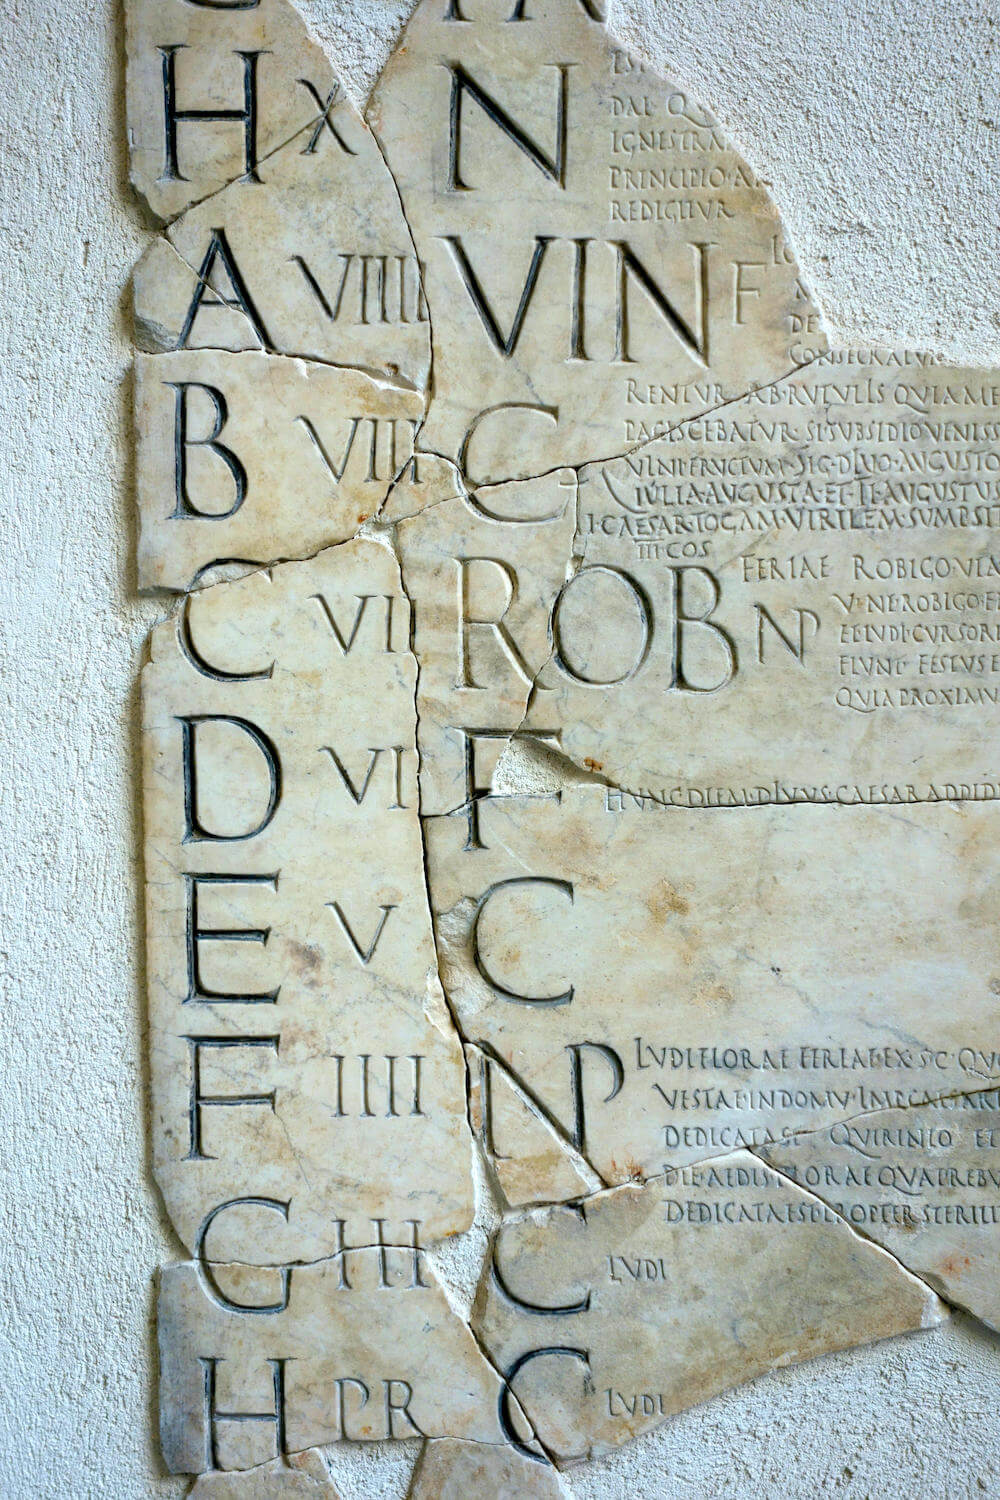 H X N
DAE Q
IGNESTRA
PRINCIPIO A
REDIGITVR
A VIIII VIN F
DE
CONSECRATVR
B VIII C RENTVR AB RVTVLIS QVIA ME
PACISCEBATVR SI SVBSIDIO VENISS
VINI FRVCTVM SIG DIVO AVGVSTO
IVLIA AVGVSTA ET TI AVGVSTV
I CAESAR TOGAM VIRILEM SVMPSIT
III COS
C VII ROB NP FERIAE ROBIGO VIA
V NE ROBIGO F
ET LVDI CVRSORI
FIVNT FESTVS E
QVIA PROXIMV
D VI F HVNC DIEM DIVVS CAESAR ADDIDI
E V C
F IIII NP LVDI FLORAE FERIAE EX S C QVO
VESTAE IN DOMV IMP CAESARI
DEDICATAST QVIRINIO ET
DIE AEDIS FLORAE QVAE REBV
DEDICATA EST PROPTER STERILIT
G III C LVDI
H PR C LVDI